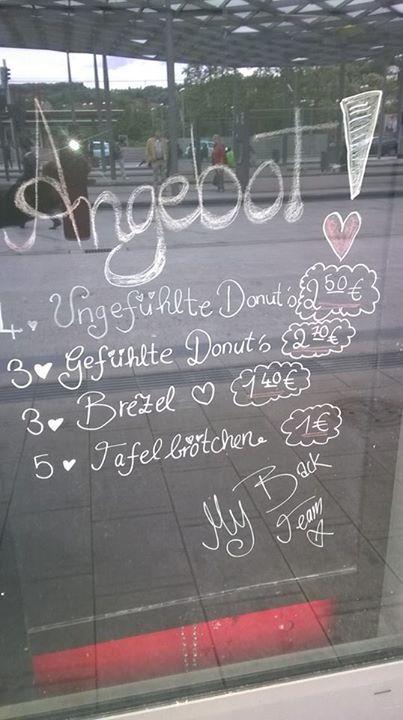 Angebot!
4. Ungefühlte Donut's 2 50 €
3 ♥ Gefühlte Donut's 2 70 €
3 ♥ Brezel ♡ 1 40 €
5 ♥ Tafelbrötchen 1 €
My Back
Team